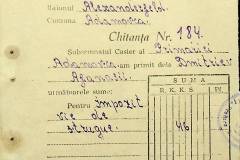 Raionul Alexanderfeld
Comuna Adamovca
Chitanța Nr. 184.
Subsemnatul Casier al Primăriei
Adamovca am primit dela Dmitriev
Afanasii
următoarele sume:
SUMA
R. K. K. S. R.
Pentru impozit
vie de
strugure. 46